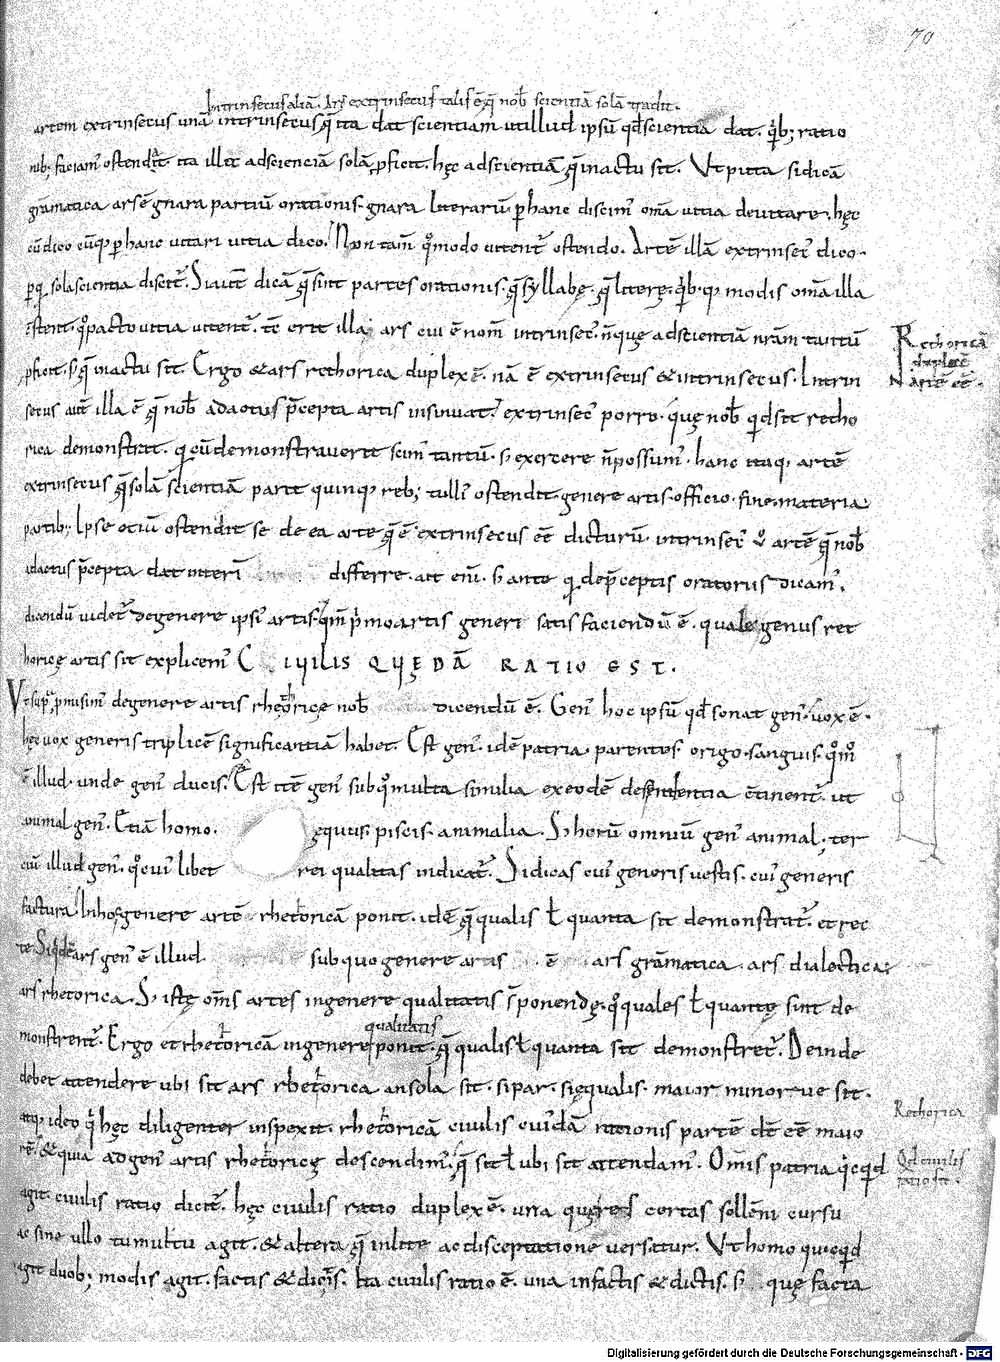 70
Intrinsecus aliā. Ars extrinsecus talis ē q̄ nob̄ scientiā solā tradit.
artem extrinsecus unā intrinsecus q̄ ita dat scientiam ut illud ipsū qđ scientia dat. quib; ratio
nib; faciam' ostendat̄ ita illa ad scienciā solā ꝓficit. hęc ad scientiā q̄ in actu sit. Ut puta si dicā
gramatica ars ē gnara partiū orationis. gnara literarū. ꝑ hanc discim' om̄a uitia deuitare. hęc
cū dico eūq; ꝑ hanc uitari uitia dico. Non tam̄ qͦmodo uitent̄ ostendo. Artē illā extrinsec' dico.
ꝑ q̄ sola scientia discit̄. Si aut̄ dicā q̄ sint partes orationis. q̄ syllabę. q̄ literę. quib; q; modis om̄a illa
qͦ pacto uitia uitent̄. tē erit illa ars cui ē nom̄ intrinsec'. n̄ q̄ ad scientiā nr̄am tantū
ꝓficit. s; q̄ in actu sit. Ergo & ars rethorica duplex ē. nā ē extrinsecus & intrinsecus. Intrin
secus aut̄ illa ē q̄ nob̄ ad actus p̄cepta artis insinuat. extrinsec' porro. quę nob̄ quid sit retho
rica demonstrat. q̄ cū demonstrauerit scim' tantū. s; exercere n̄ possum'. hanc itaq; artē
extrinsecus q̄ solā scientiā parit quinq; reb; tulli' ostendit. genere artis. officio. fine. materia
partib; Ipse etiū ostendit se de ea arte q̄ ē extrinsecus eē dicturū. intrinsec' ů artē q̄ nob̄
ad actus p̄cepta dat differre. ait eni. s; ante q̄ de p̄ceptis oratoriis dicam'.
dicendū uidet̄ de genere ipsi' artis. q̄m p̄mo artis generi satis faciendū ē. quale genus ret
horicę artis sit explicem' CIUILIS QUĘDĀ RATIO EST.
Ut supͣ p̄misim' de genere artis rhetoricę nob̄ dicendū ē. Gen' hoc ipsū qđ sonat gen'. uox ē.
hęc uox generis triplicē significantiā habet. Est gen'. idē patria. parentes. origo. sanguis. qͦmͦ
ē illud. unde gen' ducis. Est itē gen' sub qͦ multa similia ex eodē descendentia c̄tinent̄. ut
animal gen'. Etiā homo. equus. piscis. animalia. S; horū omniū gen' animal. ter
ciū illud gen'. qͦ cui' libet rei qualitas indicat̄. Si dicas cui' generis uestis. cui' generis
factura. In hoc genere artē rhetoricā ponit. idē q̄ qualis ł quanta sit demonstrat̄. et rec
te. Siquidē ars gen' ē illud sub quo genere artis ē ars grāmatica. ars dialectica.
ars rhetorica. S; istę om̄s artes in genere qualitatis s̄ ponendę. qͦ quales ł quantę sint de
monstrent̄. Ergo et rhetoricā in genere qualitatis ponit. q̄ qualis ł quanta sit demonstret̄. Deinde
debet attendere ubi sit ars rhetorica an sola sit. si par. si ęqualis. maior minor ue sit.
atq; ideo q̄ hęc diligenter inspexit. rhetoricā ciuilis cui'dā rationis partē dic̄ eē maio
rē. & quia ad gen' artis rhetoricę descendim'. q̄ sit ł ubi sit attendam'. Om̄is patria quicquid
agit. ciuilis ratio dicit̄. hęc ciuilis ratio duplex ē. una quę res certas sollēni cursu
ac sine ullo tumultu agit. & altera q̄ in lite ac disceptatione uersatur. Ut homo quicquid
agit duob; modis agit. factis & dictis. Ita ciuilis ratio ē. una in factis & dictis. s; quę facta
Rethoricā
duplicē
artē eē.
Rethorica
Qđ ciuilis
ratio sit.
Digitalisierung gefördert durch die Deutsche Forschungsgemeinschaft - DFG